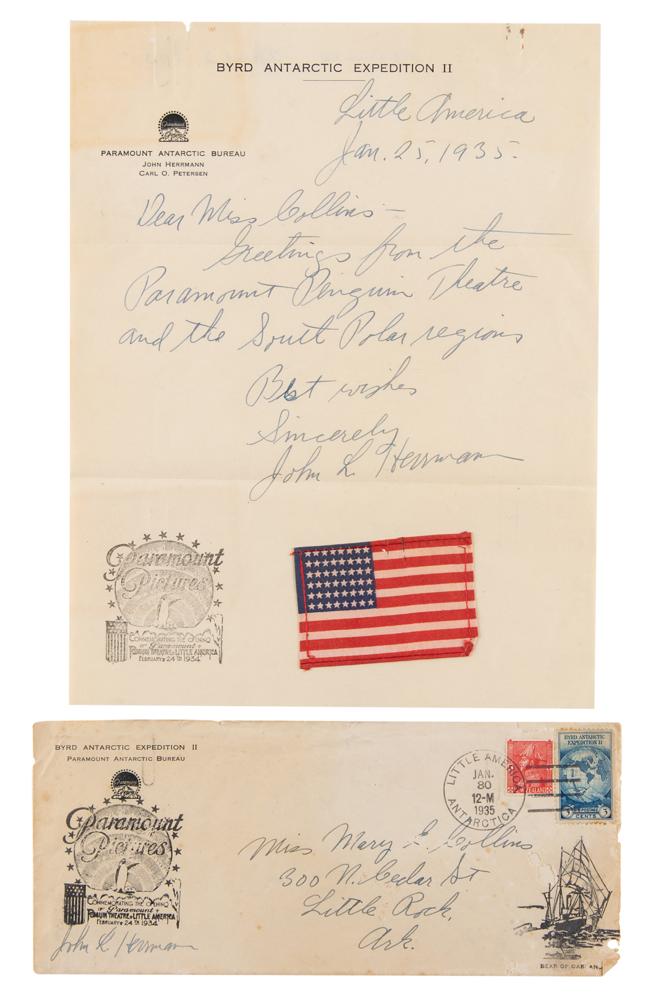 BYRD ANTARCTIC EXPEDITION II
Little America
Jan. 25, 1935.
PARAMOUNT ANTARCTIC BUREAU
JOHN HERRMANN
CARL O. PETERSEN
Dear Miss Collins—
Greetings from the
Paramount Penguin Theatre
and the South Polar regions
Best wishes
Sincerely
John L Herrmann
Paramount
Pictures
COMMEMORATING THE OPENING
OF Paramount
PENGUIN THEATRE LITTLE AMERICA
FEBRUARY 24TH 1934
BYRD ANTARCTIC EXPEDITION II
PARAMOUNT ANTARCTIC BUREAU
Paramount
Pictures
COMMEMORATING THE OPENING
OF Paramount
PENGUIN THEATRE LITTLE AMERICA
FEBRUARY 24TH 1934
John L Herrmann
LITTLE AMERICA
JAN.
30
12-M
1935
ANTARCTICA
BYRD ANTARCTIC
EXPEDITION II
3 3
CENTS
Miss Mary L Collins
300 N. Cedar St
Little Rock,
Ark.
BEAR OF OAKLAN